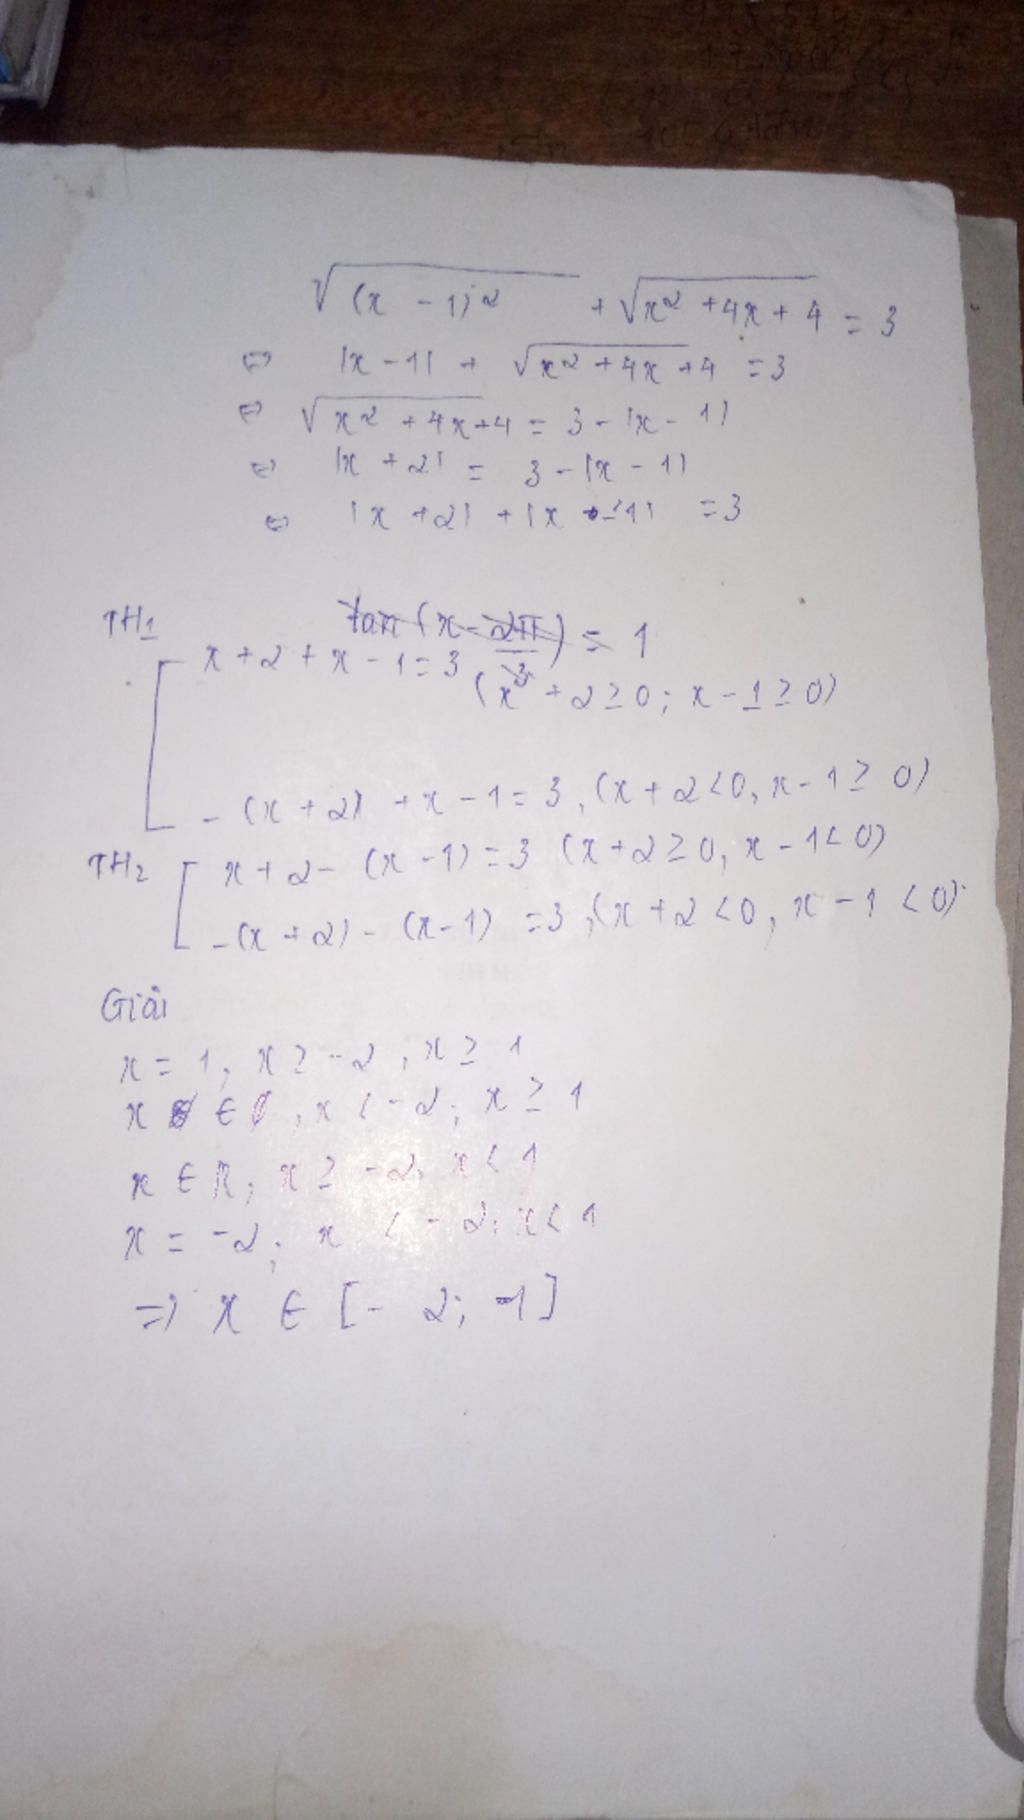 √(x - 1)² + √x² + 4x + 4 = 3
⇔ |x - 1| + √x² + 4x + 4 = 3
⇔ √x² + 4x + 4 = 3 - |x - 1|
⇔ |x + 2| = 3 - |x - 1|
⇔ |x + 2| + |x - 1| = 3
TH1
tan(x - 2π/3) = 1
x + 2 + x - 1 = 3 (x + 2 ≥ 0; x - 1 ≥ 0)
- (x + 2) + x - 1 = 3, (x + 2 < 0, x - 1 ≥ 0)
TH2 x + 2 - (x - 1) = 3 (x + 2 ≥ 0, x - 1 < 0)
-(x + 2) - (x - 1) = 3, (x + 2 < 0, x - 1 < 0)
Giải
x = 1, x ≥ -2, x ≥ 1
x ∈ , x < -2; x ≥ 1
x ∈ R; x ≥ -2, x < 1
x = -2; x < -2; x < 1
=> x ∈ [- 2; 1]